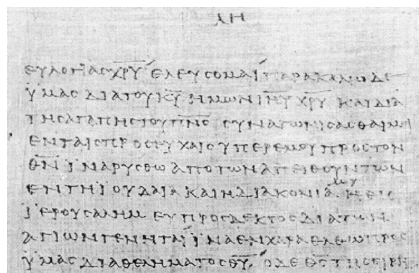 ΛΗ
ΕΥΛΟΓΙΑϹ ΧΡΥ ΕΛΕΥϹΟΜΑΙ ΠΑΡΑΚΑΛΩ ΔΕ
ΫΜΑϹ ΔΙΑ ΤΟΥ ΚΥ ΗΜΩΝ ΙΗΥ ΧΡΥ ΚΑΙ ΔΙΑ
ΤΗϹ ΑΓΑΠΗϹ ΤΟΥ ΠΝϹ ϹΥΝΑΓΩΝΙϹΑϹΘΑΙ ΜΟΙ
ΕΝ ΤΑΙϹ ΠΡΟϹΕΥΧΑΙϹ ΥΠΕΡ ΕΜΟΥ ΠΡΟϹ ΤΟΝ
ΘΝ ΪΝΑ ΡΥϹΘΩ ΑΠΟ ΤΩΝ ΑΠΕΙΘΟΥΝΤΩΝ
ΕΝ ΤΗ ΙΟΥΔΑΙΑ ΚΑΙ Η ΔΙΑΚΟΝΙΑ ΜΟΥ Η ΕΙϹ
ΪΕΡΟΥϹΑΛΗΜ ΕΥΠΡΟϹΔΕΚΤΟϹ ΔΙΑ ΤΩΝ
ΑΓΙΩΝ ΓΕΝΗΤΑΙ ΪΝΑ ΕΝ ΧΑΡΑ ΕΛΘΩ ΠΡΟϹ
ΫΜΑϹ ΔΙΑ ΘΕΛΗΜΑΤΟϹ ΘΥ Ο ΔΕ ΘϹ ΤΗϹ ΕΙΡΗ